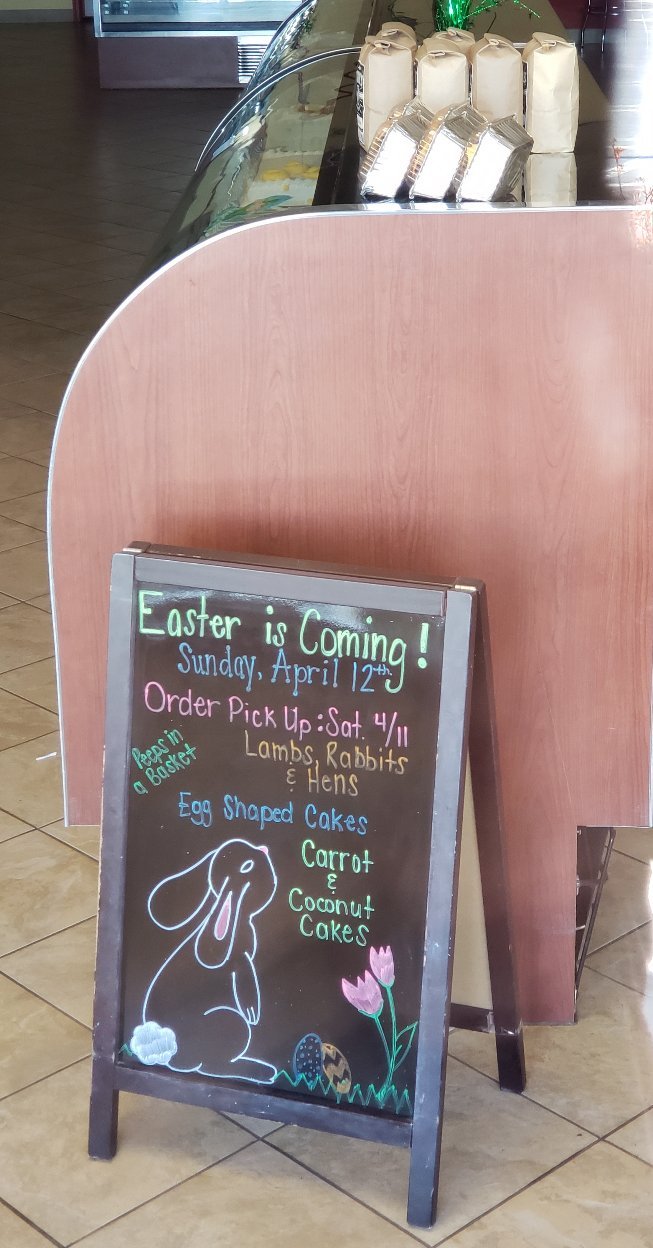 Easter is Coming!
Sunday, April 12th
Order Pick Up: Sat. 4/11
Peeps in
a Basket
Lambs, Rabbits
& Hens
Egg Shaped Cakes
Carrot
&
Coconut
Cakes